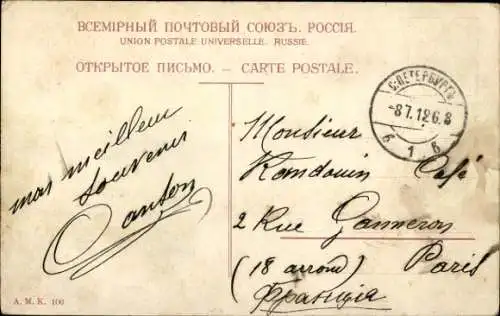 ВСЕМІРНЫЙ ПОЧТОВЫЙ СОЮЗЪ. РОССІЯ.
UNION POSTALE UNIVERSELLE. RUSSIE.
ОТКРЫТОЕ ПИСЬМО. — CARTE POSTALE.
С.ПЕТЕРБУРГЪ
-8.7.12 6.8
6 1 Б
mon meilleur
souvenir
Monsieur
Café
2 Rue Ganneron
(18 arrond) Paris
Франція
A. M. K. 100